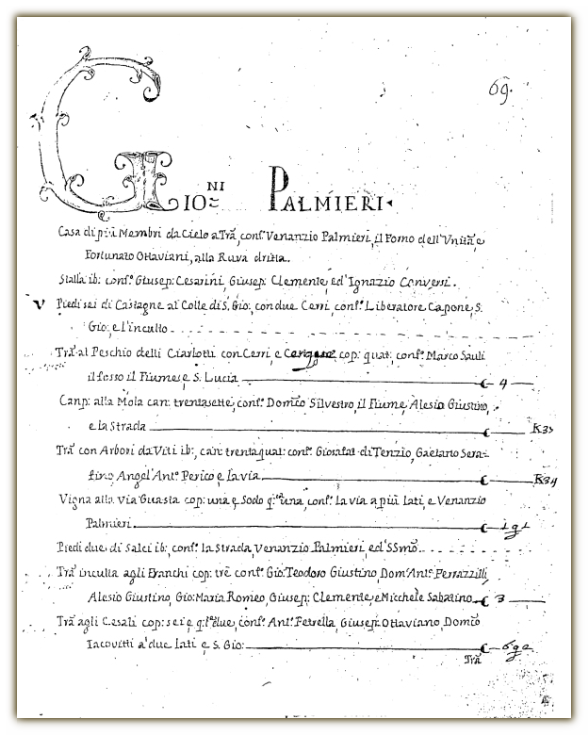 69.
GIO:NI PALMIERI.
Casa di più Membri da Cielo a Trã, confn. Venanzio Palmieri, il Forno dell'Vnità, e
Fortunato Ottaviani, alla Ruva dritta.
Stalla ib: confn. Giusep: Cesarini, Giusep: Clemente, ed' Ignazio Conversi.
v Piedi sei di Castagne al Colle di S. Gio: con due Cerri, confn. Liberatore Capone, S.
Gio: e l'inculto
Trã al Peschio delli Ciarlotti con Cerri, e cop: quat: confn. Marco Sauli
il fosso il Fiume, e S. Lucia C 4
Canp: alla Mola can: trentasette, confn. Domco Silvestro, il Fiume, Alesio Giustino,
e la Strada C K37
Trã con Arbori da Viti ib:, can: trentaqual: confn. Giosafat di Tenzio, Gaetano Sera-
fino Angel'Antn. Perico e la via C K34
Vigna alla via Guasta cop: una, e Sodo qrta una, confn. la via a più lati, e Venanzio
Palmieri C 1 q 1
Piedi due di Salci ib:, confn. la strada, Venanzio Palmieri, ed' SSmo.
Trã inculta agli Branchi cop: tre confn. Gio: Teodoro Giustino, Dom'Antn. Perrazzilli,
Alesio Giustino, Gio: Maria Romeo, Giusep: Clemente, e Micchele Sabatino C 3
Trã agli Casali cop: sei, e qrta due, confn. Antn. Petrella, Giusep: Ottaviano, Domco
Iacovitti a' due lati e S. Gio: C 6 q 2
Trã